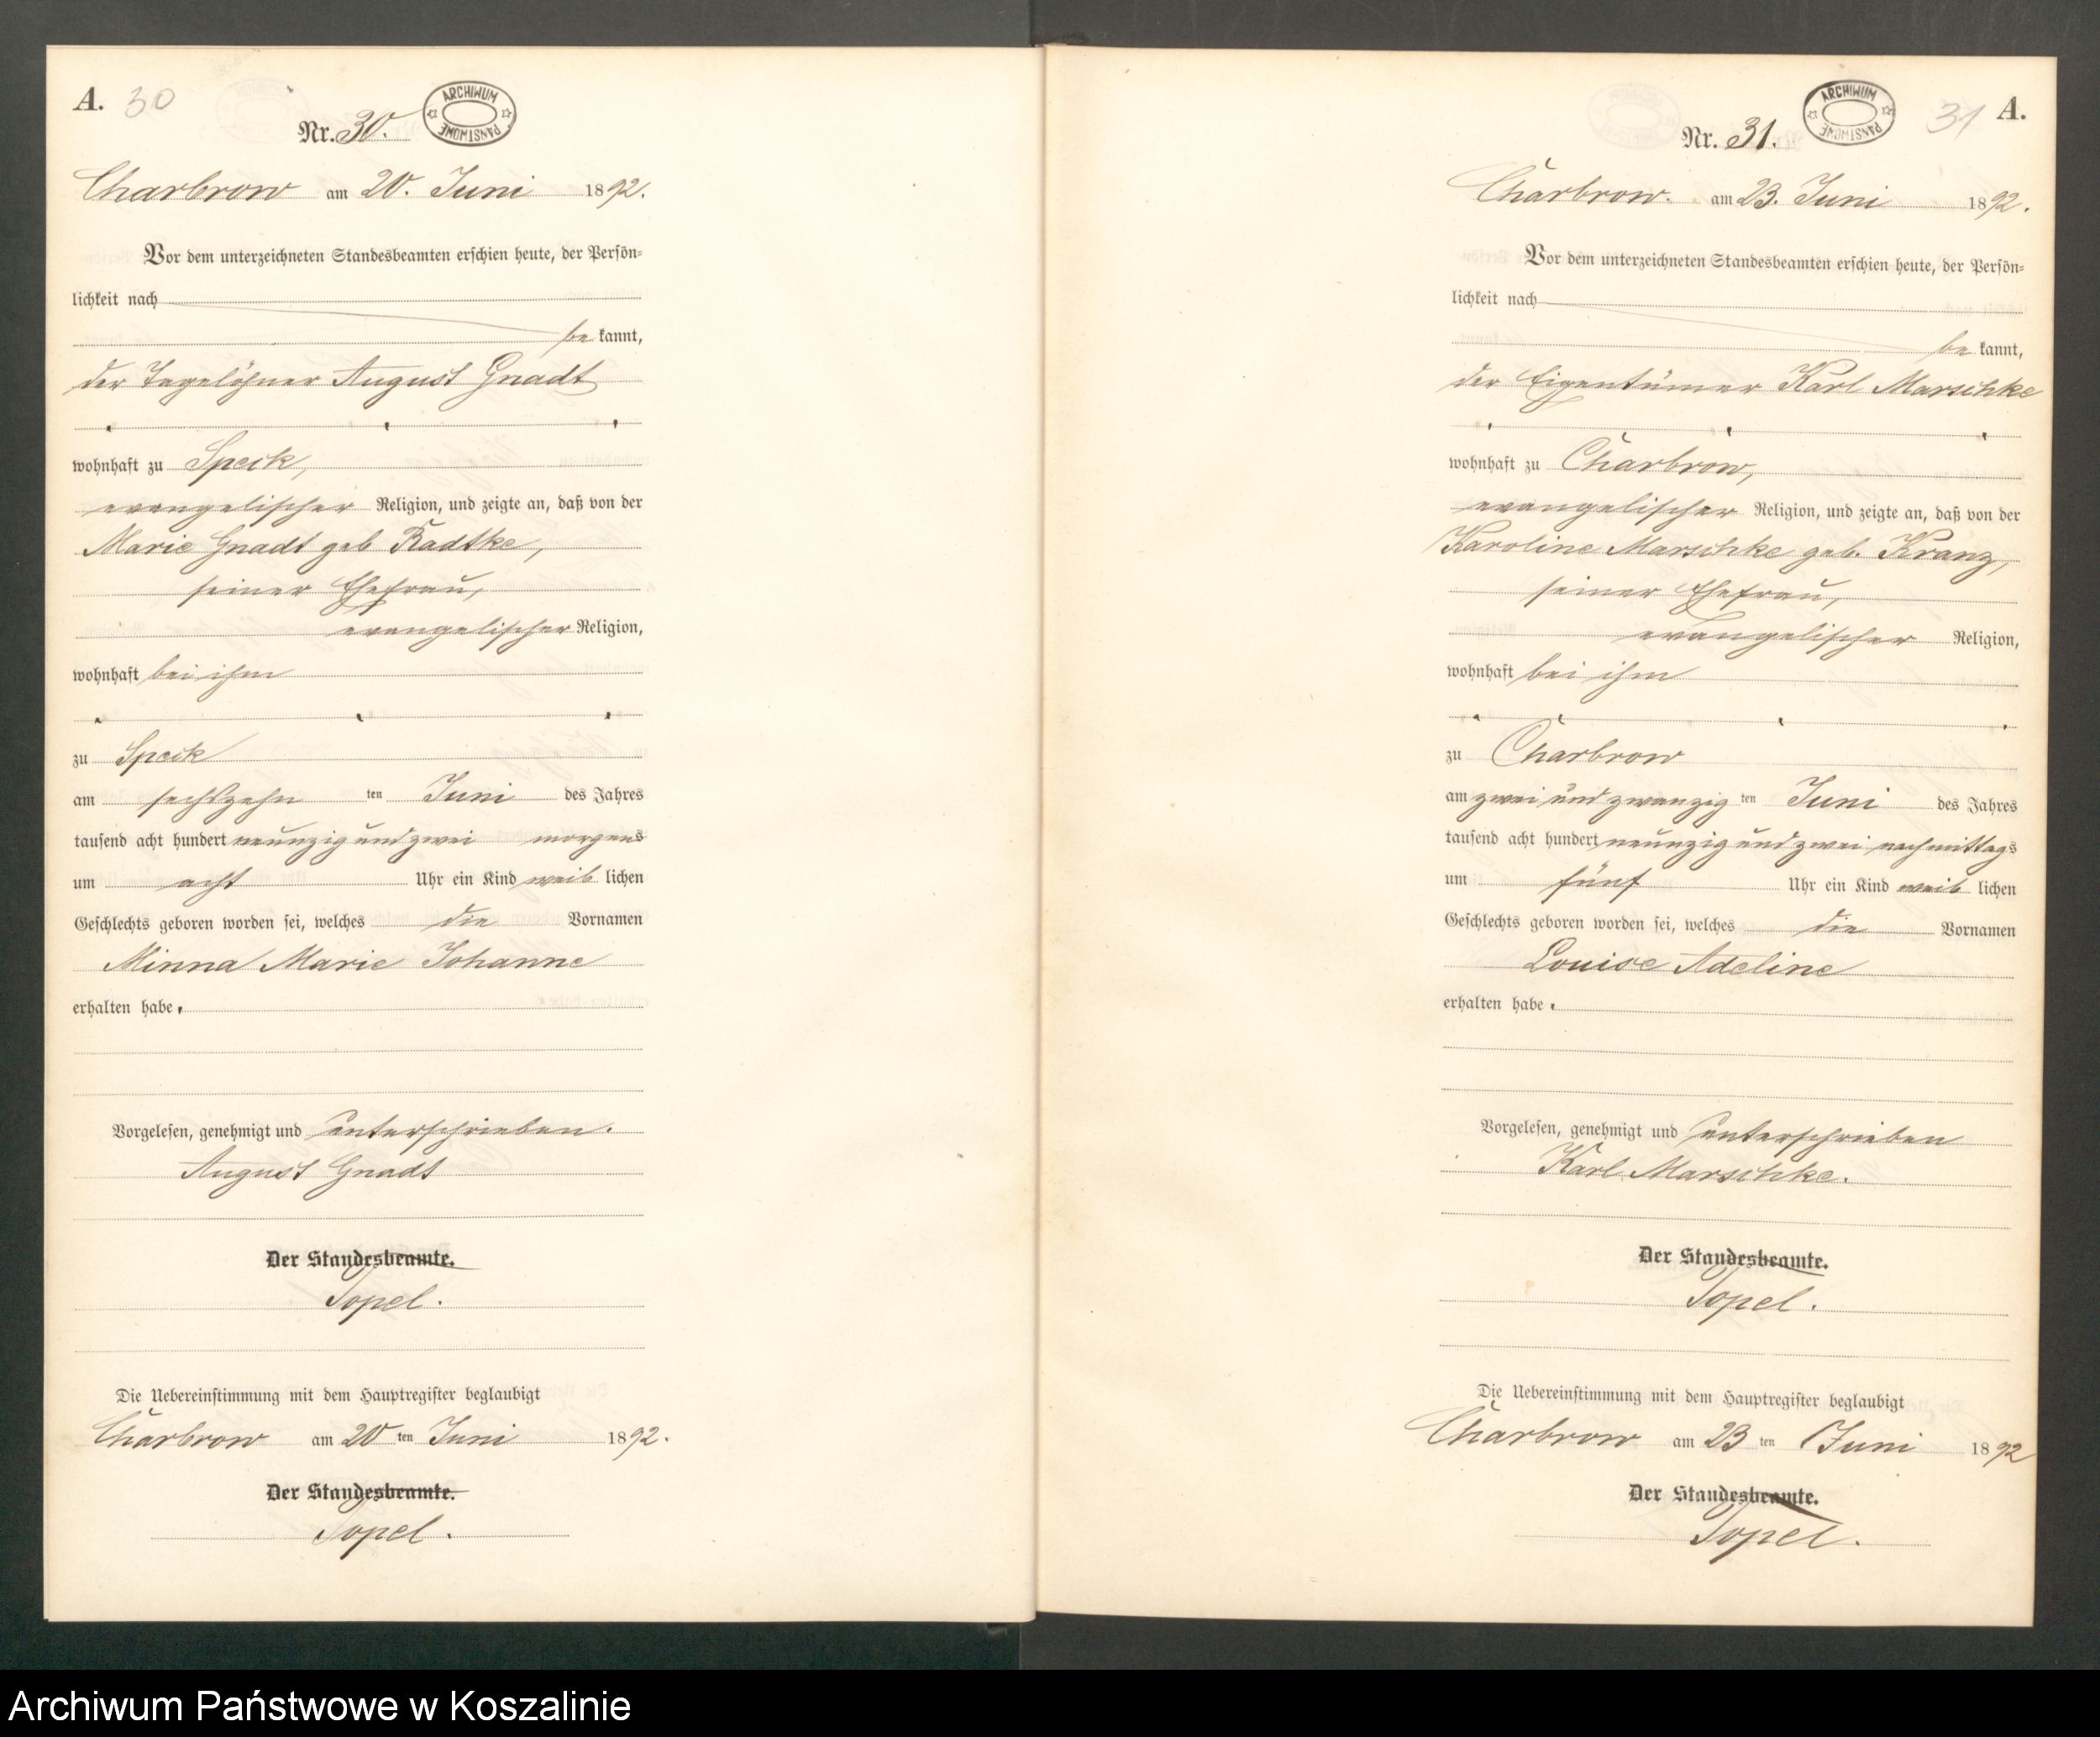 A. 30
Nr. 30.
ARCHIWUM PAŃSTWOWE
Charbrow am 20. Juni 1892.
Vor dem unterzeichneten Standesbeamten erschien heute, der Persön-
lichkeit nach
be kannt,
der Tagelöhner August Gnadt
wohnhaft zu Speck,
evangelischer Religion, und zeigte an, daß von der
Marie Gnadt geb Radtke,
seiner Ehefrau,
evangelischer Religion,
wohnhaft bei ihm
zu Speck
am sechszehn ten Juni des Jahres
tausend acht hundert neunzig und zwei morgens
um acht Uhr ein Kind weib lichen
Geschlechts geboren worden sei, welches die Vornamen
Minna Marie Johanne
erhalten habe.
Vorgelesen, genehmigt und unterschrieben.
August Gnadt
Der Standesbeamte.
Topel.
Die Uebereinstimmung mit dem Hauptregister beglaubigt
Charbrow am 20 ten Juni 1892.
Der Standesbeamte.
Topel.
31 A.
Nr. 31.
ARCHIWUM PAŃSTWOWE
Charbrow. am 23. Juni 1892.
Vor dem unterzeichneten Standesbeamten erschien heute, der Persön-
lichkeit nach
be kannt,
der Eigentümer Karl Marschke
wohnhaft zu Charbrow,
evangelischer Religion, und zeigte an, daß von der
Karoline Marschke geb. Kranz,
seiner Ehefrau,
evangelischer Religion,
wohnhaft bei ihm
zu Charbrow
am zwei und zwanzig ten Juni des Jahres
tausend acht hundert neunzig und zwei nachmittags
um fünf Uhr ein Kind weib lichen
Geschlechts geboren worden sei, welches die Vornamen
Louise Adeline
erhalten habe.
Vorgelesen, genehmigt und unterschrieben
Karl Marschke.
Der Standesbeamte.
Topel.
Die Uebereinstimmung mit dem Hauptregister beglaubigt
Charbrow am 23 ten Juni 1892
Der Standesbeamte.
Topel.
Archiwum Państwowe w Koszalinie